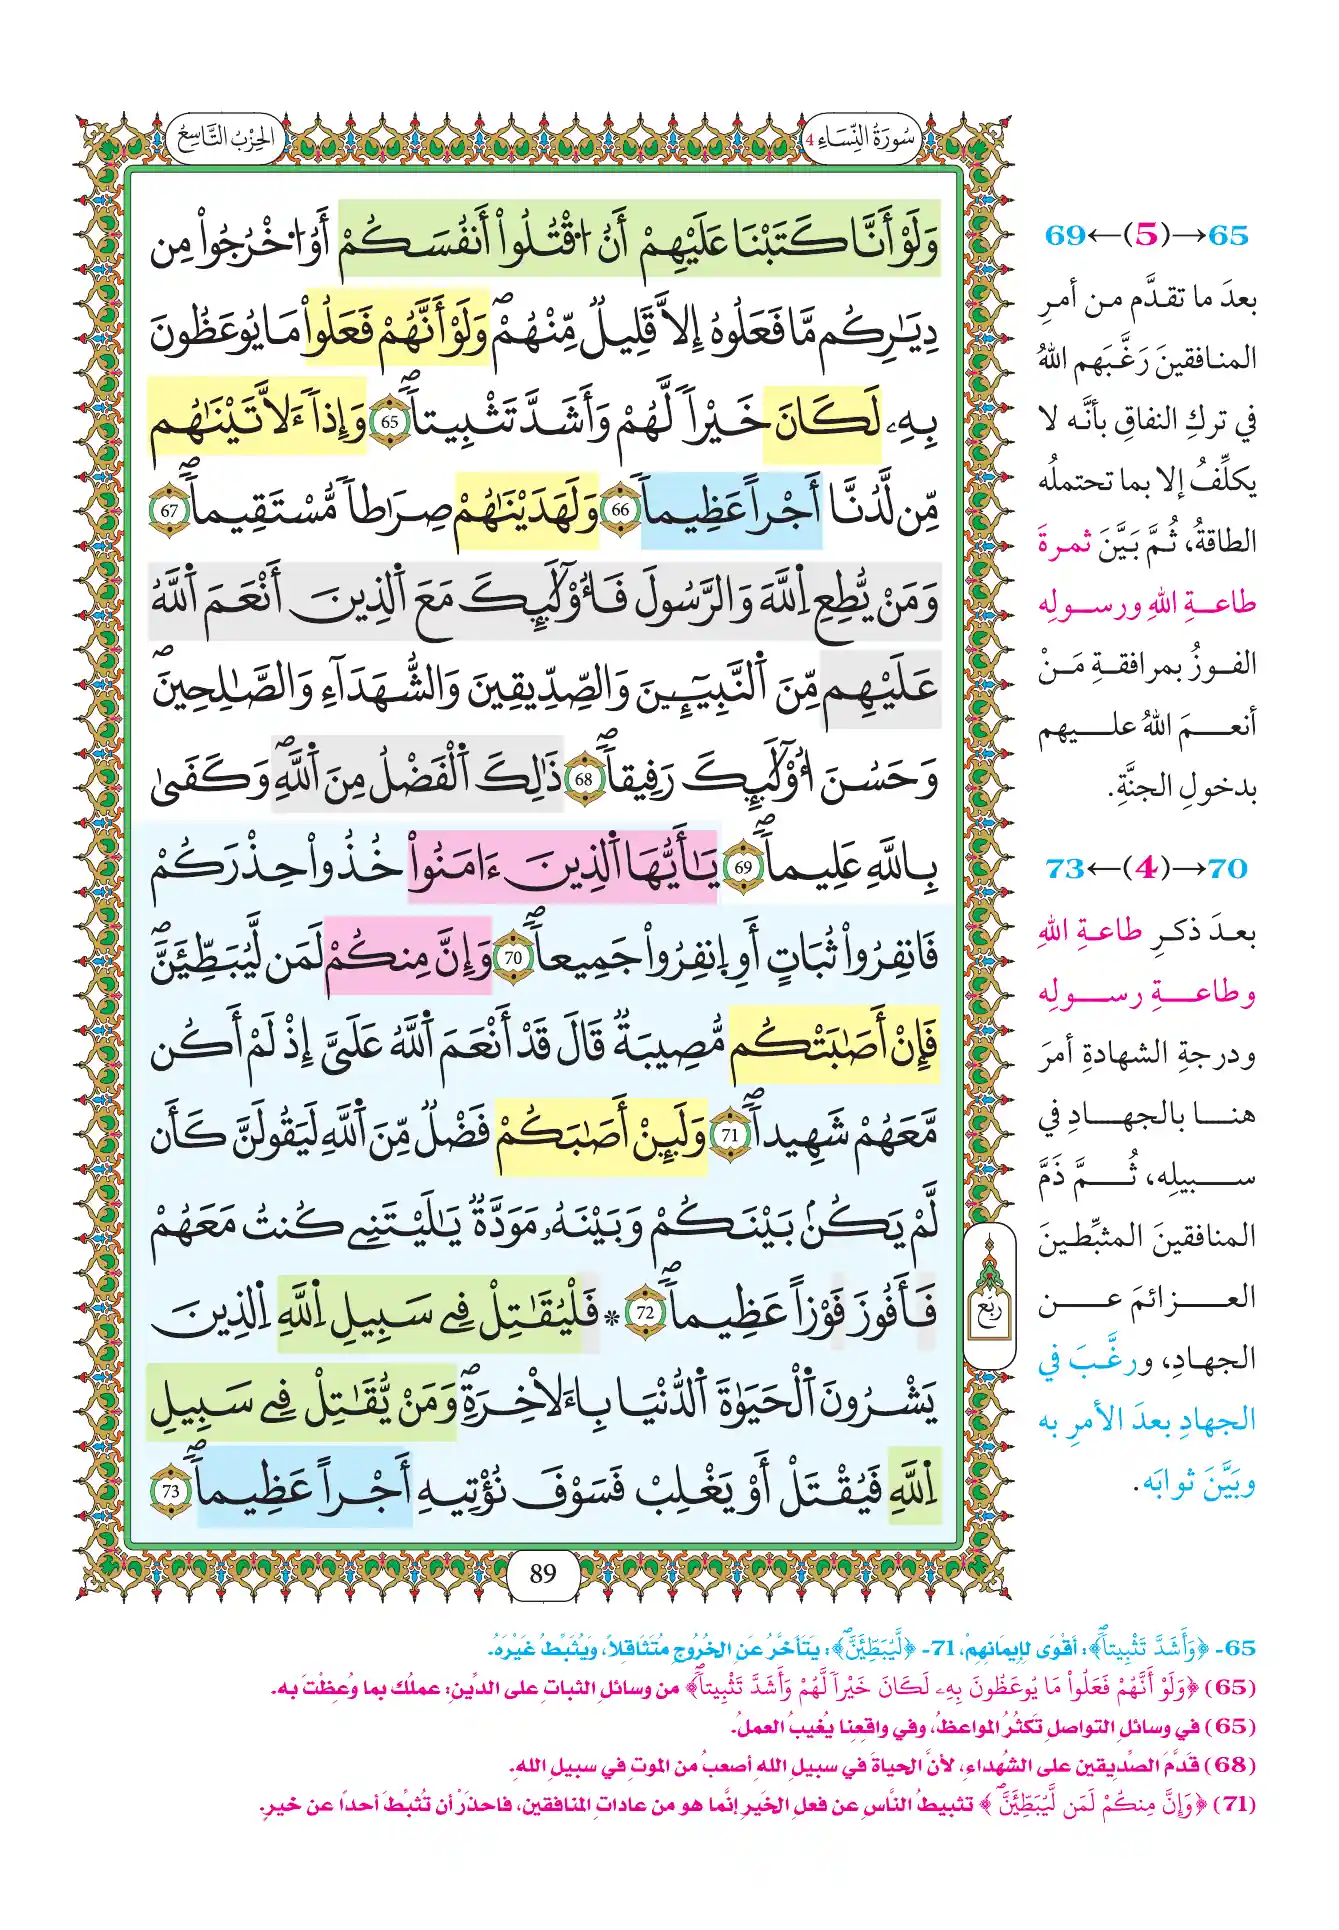 سُورَةُ النِّسَاءِ 4
الحِزْبُ التَّاسِعُ
وَلَوْ أَنَّا كَتَبْنَا عَلَيْهِمُۥٓ أَنُ اُ۟قْتُلُوٓاْ أَنفُسَكُمُۥٓ أَوُ اُ۟خْرُجُواْ مِن
دِيَٰرِكُم مَّا فَعَلُوهُ إِلَّا قَلِيلٌ مِّنْهُمْۖ وَلَوْ أَنَّهُمْ فَعَلُواْ مَا يُوعَظُونَ
بِهِۦ لَكَانَ خَيْراً لَّهُمْ وَأَشَدَّ تَثْبِيتاًۖ 65 وَإِذاً ءَلَاتَيْنَٰهُم
مِّن لَّدُنَّا أَجْراً عَظِيماً 66 وَلَهَدَيْنَٰهُمْ صِرَٰطاً مُّسْتَقِيماًۖ 67
وَمَنْ يُّطِعِ اِ۬للَّهَ وَالرَّسُولَ فَأُوْلَٰٓئِكَ مَعَ اَ۬لذِينَ أَنْعَمَ اَ۬للَّهُ
عَلَيْهِم مِّنَ اَ۬لنَّبِيٓـِٕينَ وَالصِّدِّيقِينَ وَالشُّهَدَآءِ وَالصَّٰلِحِينَۖ
وَحَسُنَ أُوْلَٰٓئِكَ رَفِيقاًۖ 68 ذَٰلِكَ اَ۬لْفَضْلُ مِنَ اَ۬للَّهِۖ وَكَفَىٰ
بِاللَّهِ عَلِيماًۖ 69 يَٰٓأَيُّهَا اَ۬لذِينَ ءَامَنُواْ خُذُواْ حِذْرَكُمْ
فَانفِرُواْ ثُبَاتٍ أَوِ اِ۪نفِرُواْ جَمِيعاًۖ 70 وَإِنَّ مِنكُمْ لَمَن لَّيُبَطِّئَنَّۖ
فَإِنْ أَصَٰبَتْكُم مُّصِيبَةٌ قَالَ قَدْ أَنْعَمَ اَ۬للَّهُ عَلَيَّ إِذْ لَمْ أَكُن
مَّعَهُمْ شَهِيداًۖ 71 وَلَئِنْ أَصَٰبَكُمْ فَضْلٌ مِّنَ اَ۬للَّهِ لَيَقُولَنَّ كَأَن
لَّمْ يَكُنۢ بَيْنَكُمْ وَبَيْنَهُۥ مَوَدَّةٌ يَٰلَيْتَنِے كُنتُ مَعَهُمْ
فَأَفُوزَ فَوْزاً عَظِيماًۖ 72 * فَلْيُقَٰتِلْ فِے سَبِيلِ اِ۬للَّهِ اِ۬لذِينَ
يَشْرُونَ اَ۬لْحَيَوٰةَ اَ۬لدُّنْيَا بِاءَلَاخِرَةِۖ وَمَنْ يُّقَٰتِلْ فِے سَبِيلِ
اِ۬للَّهِ فَيُقْتَلْ أَوْ يَغْلِبْ فَسَوْفَ نُؤْتِيهِ أَجْراً عَظِيماًۖ 73
ربع
89
65→(5)←69
بعدَ ما تقدَّم من أمرِ
المنافقينَ رَغَّبَهم اللهُ
في تركِ النفاقِ بأنَّه لا
يكلِّفُ إلا بما تحتملُه
الطاقةُ، ثُمَّ بَيَّنَ ثمرةَ
طاعةِ اللهِ ورسولِه
الفوزُ بمرافقةِ مَنْ
أنعمَ اللهُ عليهم
بدخولِ الجنَّةِ.
70→(4)←73
بعدَ ذكرِ طاعةِ اللهِ
وطاعةِ رسولِه
ودرجةِ الشهادةِ أمرَ
هنا بالجهادِ في
سبيلِه، ثُمَّ ذَمَّ
المنافقينَ المثبِّطينَ
العزائمَ عن
الجهادِ، ورغَّبَ في
الجهادِ بعدَ الأمرِ به
وبَيَّنَ ثوابَه.
65- ﴿وَأَشَدَّ تَثْبِيتاًۖ﴾: أَقْوَى لِإِيمَانِهِمْ، 71- ﴿لَّيُبَطِّئَنَّۖ﴾: يَتَأَخَّرُ عَنِ الخُرُوجِ مُتَثَاقِلاً، وَيُثَبِّطُ غَيْرَهُ.
(65) ﴿وَلَوْ أَنَّهُمْ فَعَلُواْ مَا يُوعَظُونَ بِهِۦ لَكَانَ خَيْراً لَّهُمْ وَأَشَدَّ تَثْبِيتاًۖ﴾ من وسائلِ الثباتِ على الدِّينِ: عملُك بما وُعِظْتَ به.
(65) في وسائلِ التواصلِ تَكثُرُ المواعظُ، وفي واقعِنا يُغيبُ العملُ.
(68) قدَّمَ الصِّدِّيقين على الشُهداءِ، لأنَّ الحياةَ في سبيلِ اللهِ أصعبُ من الموتِ في سبيلِ اللهِ.
(71) ﴿وَإِنَّ مِنكُمْ لَمَن لَّيُبَطِّئَنَّۖ﴾ تثبيطُ النَّاسِ عن فعلِ الخَيرِ إنَّما هو من عاداتِ المنافقين، فاحذَرْ أن تُثبِّطَ أحدًا عن خيرٍ.